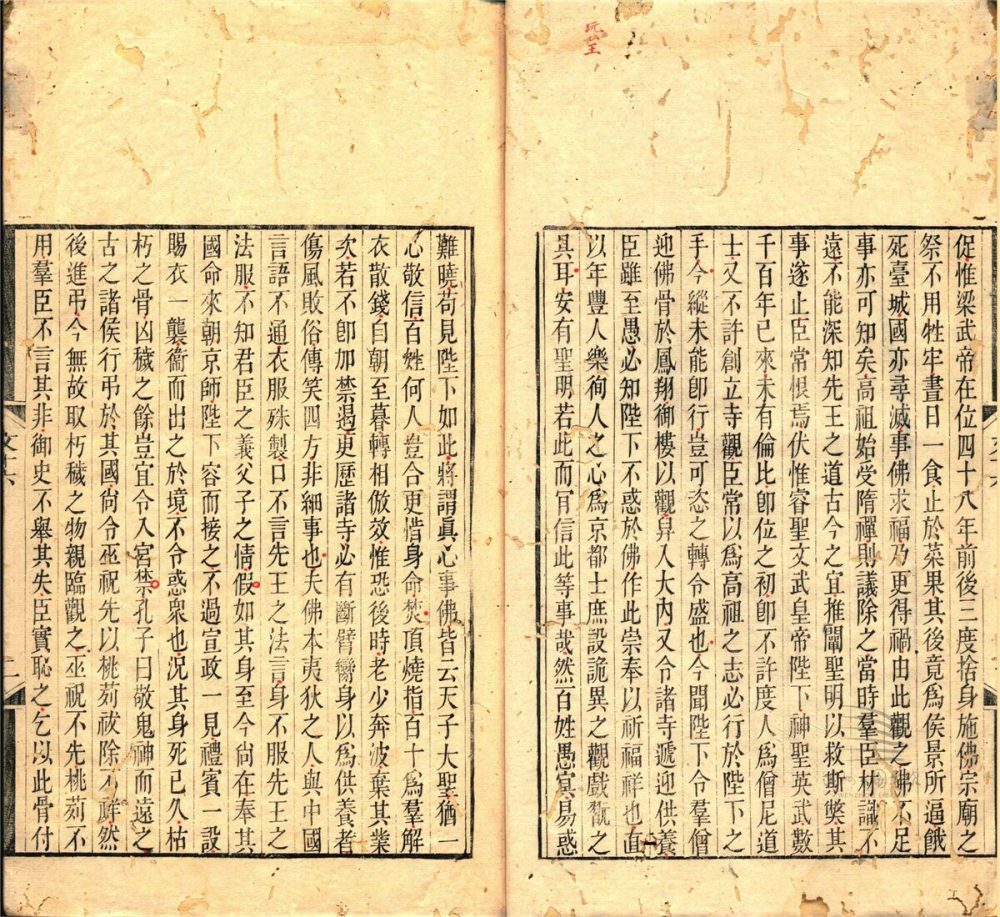 促惟梁武帝在位四十八年前後三度捨身施佛宗廟之
祭不用牲牢晝日一食止於菜果其後竟為侯景所逼餓
死臺城國亦尋滅事佛求福乃更得禍由此觀之佛不足
事亦可知矣高祖始受隋禪則議除之當時羣臣材識不
遠不能深知先王之道古今之宜推闡聖明以救斯獘其
事遂止臣常恨焉伏惟睿聖文武皇帝陛下神聖英武數
千百年已來未有倫比卽位之初卽不許度人為僧尼道
士又不許創立寺觀臣常以為高祖之志必行於陛下之
手今縱未能卽行豈可恣之轉令盛也今聞陛下令羣僧
迎佛骨於鳳翔御樓以觀舁入大內又令諸寺遞迎供養
臣雖至愚必知陛下不惑於佛作此崇奉以祈福祥也直
以年豐人樂徇人之心為京都士庶設詭異之觀戲翫之
具耳安有聖明若此而肎信此等事哉然百姓愚冥易惑
難曉苟見陛下如此將謂眞心事佛皆云天子大聖猶一
心敬信百姓何人豈合更惜身命焚頂燒指百十為羣解
衣散錢自朝至暮轉相倣效惟恐後時老少奔波棄其業
次若不卽加禁遏更歷諸寺必有斷臂臠身以為供養者
傷風敗俗傳笑四方非細事也夫佛本夷狄之人與中國
言語不通衣服殊製口不言先王之法言身不服先王之
法服不知君臣之義父子之情假如其身至今尙在奉其
國命來朝京師陛下容而接之不過宣政一見禮賓一設
賜衣一襲衞而出之於境不令惑衆也況其身死已久枯
朽之骨凶穢之餘豈宜令入宮禁孔子曰敬鬼神而遠之
古之諸侯行弔於其國尙令巫祝先以桃茢祓除不祥然
後進弔今無故取朽穢之物親臨觀之巫祝不先桃茢不
用羣臣不言其非御史不舉其失臣實恥之乞以此骨付